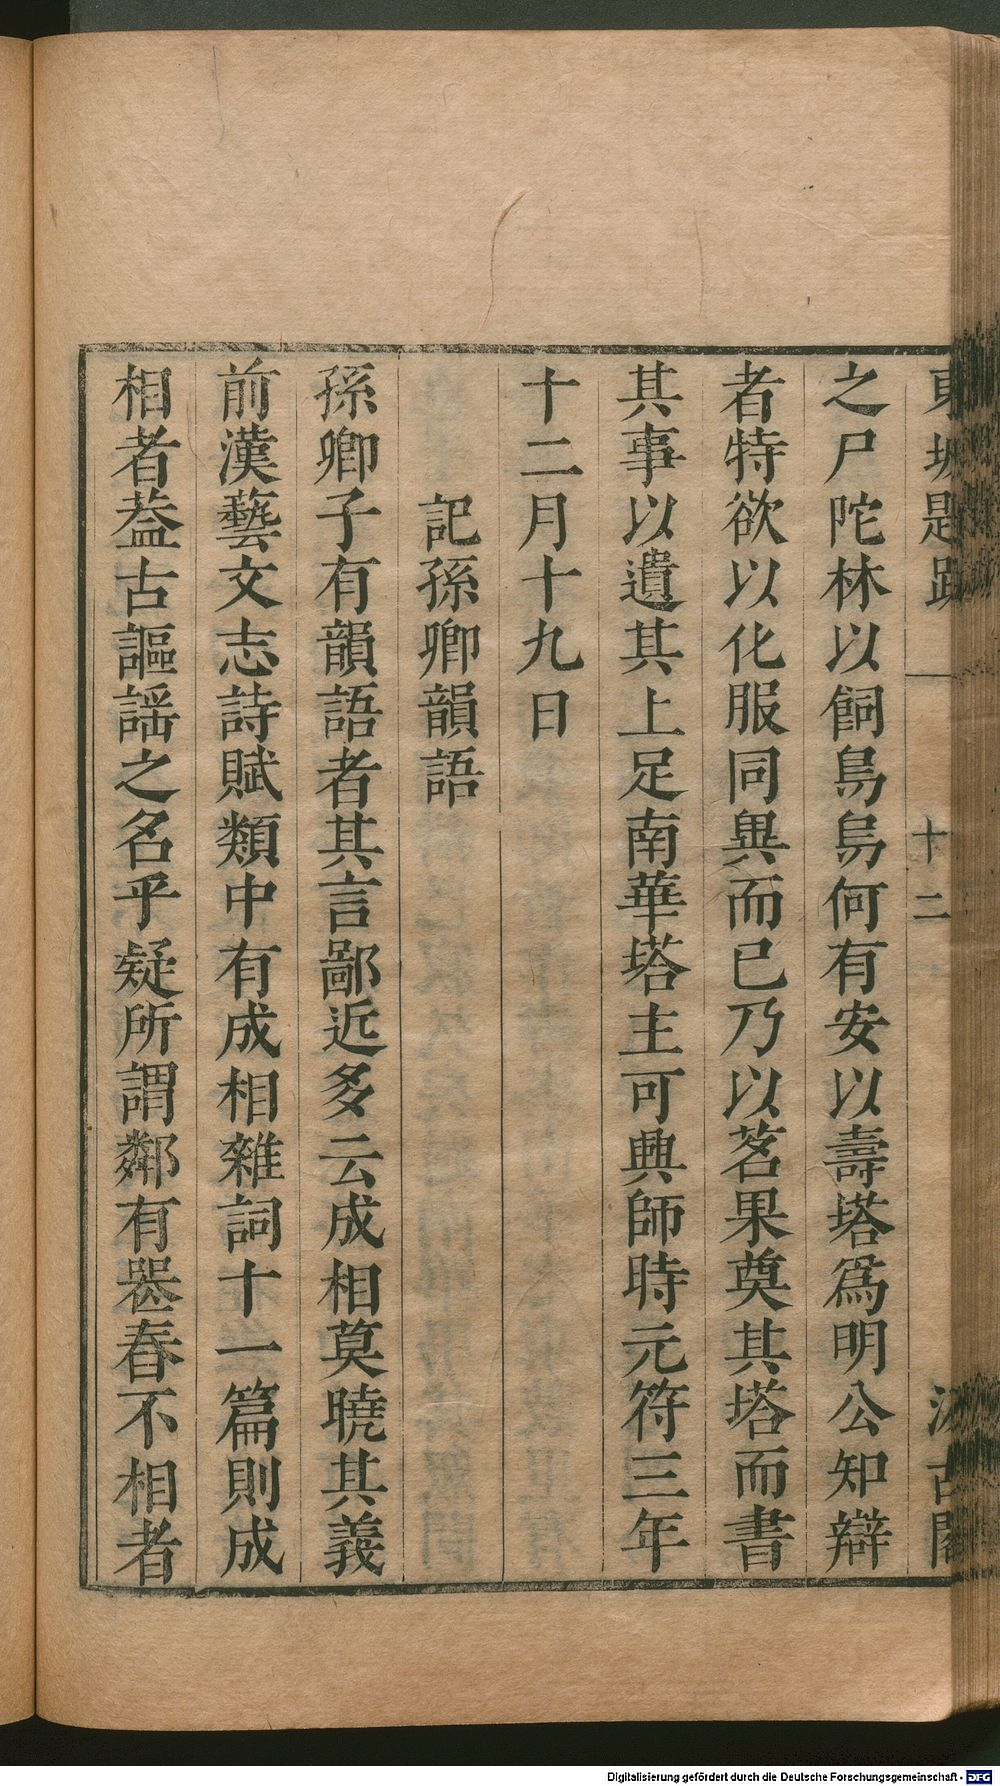 東坡題跋 一 十二 汲古閣
之尸陀林以飼鳥烏何有安以壽塔爲明公知辯
者特欲以化服同異而已乃以茗果奠其塔而書
其事以遺其上足南華塔主可興師時元符三年
十二月十九日
記孫卿韻語
孫卿子有韻語者其言鄙近多云成相莫曉其義
前漢藝文志詩賦類中有成相雜詞十一篇則成
相者葢古謳謡之名乎疑所謂鄰有喪舂不相者
Digitalisierung gefördert durch die Deutsche Forschungsgemeinschaft - DFG